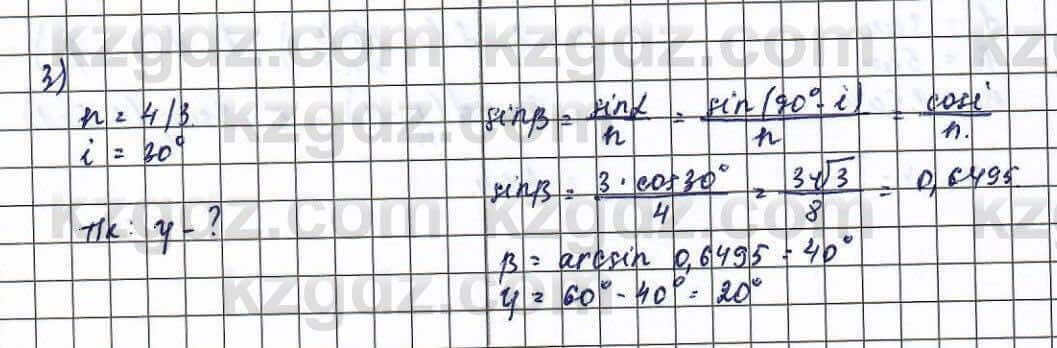 kzgdz.com kzgdz.com
3)
n = 4/3
i = 30°
Тк: γ - ?
sinβ = sinα/n = sin(90° - i)/n = cosi/n.
sinβ = 3 · cos30°/4 = 3√3/8 = 0,6495
β = arcsin 0,6495 = 40°
γ = 60° - 40° = 20°
kzgdz.com kzgdz.com
kzgdz.com kzgdz.com
kzgdz.com kzgdz.com